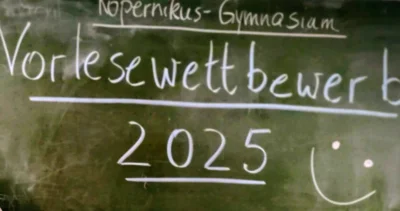 Kopernikus-Gymnasium
Vorlesewettbewerb
2025